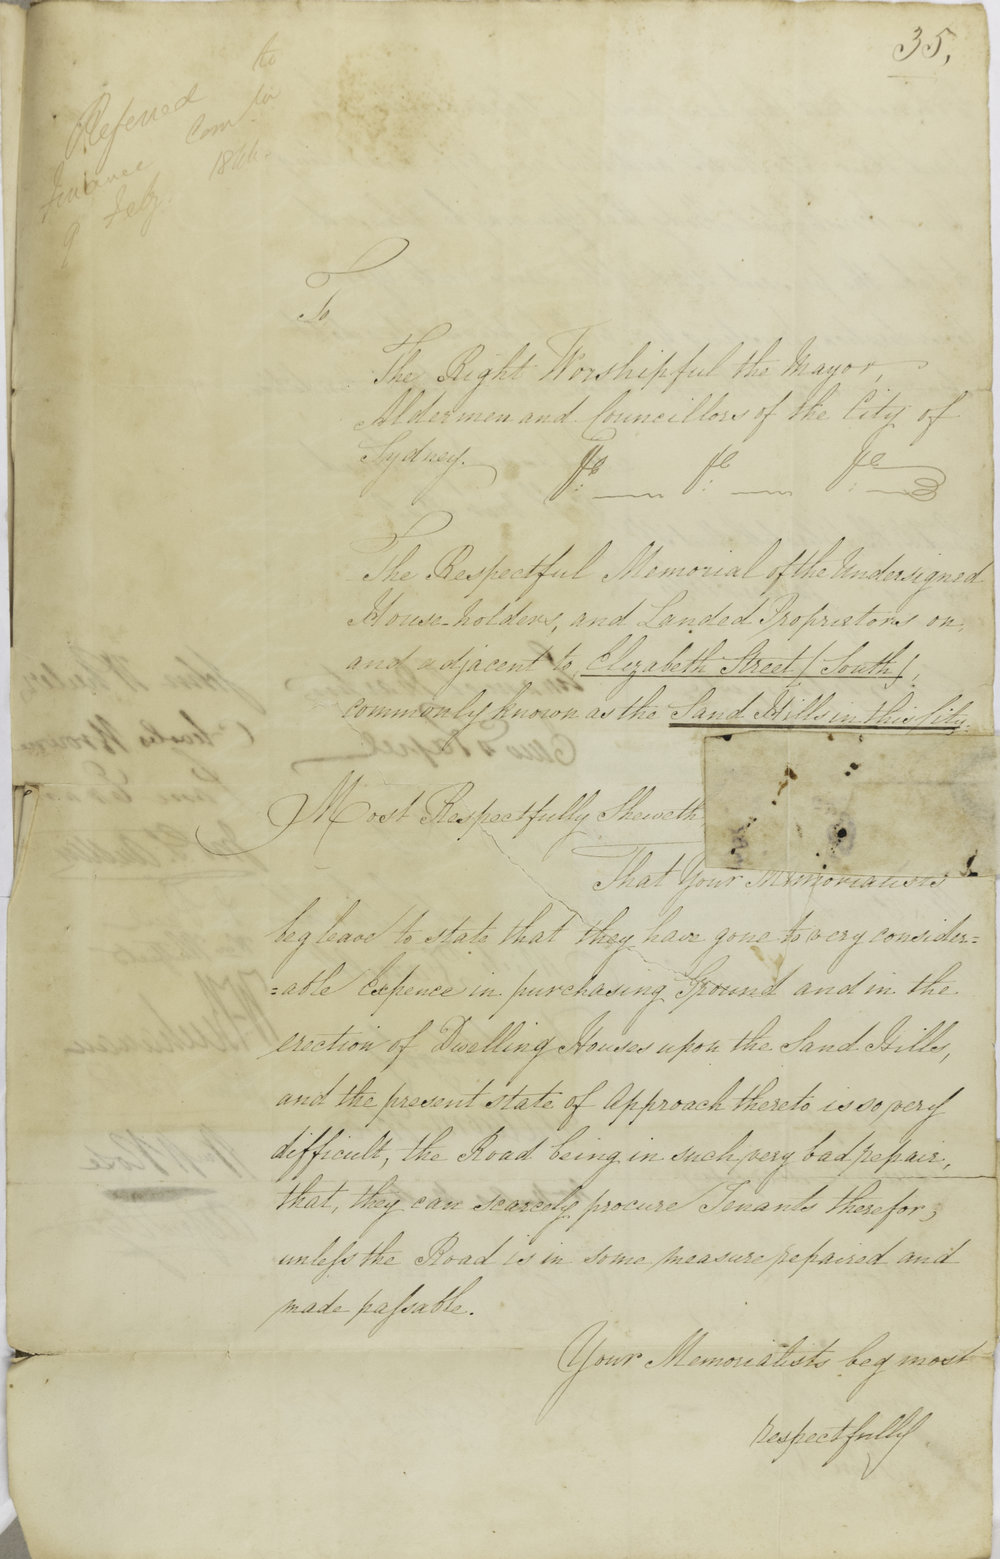 35,
Referred to
Finance Com.tee for
9 Feby. 1844.
To
The Right Worshipful the Mayor,
Aldermen and Councillors of the City of
Sydney. &c &c &c
The Respectful Memorial of the Undersigned
House-holders, and Landed Proprietors on,
and adjacent to Elizabeth Street (South),
commonly known as the Sand Hills in this City.
Most Respectfully Sheweth
That Your Memorialists
beg leave to state that they have gone to very consider=
=able Expence in purchasing Ground and in the
erection of Dwelling Houses upon the Sand Hills,
and the present state of approach thereto is so very
difficult, the Road being in such very bad repair,
that, they can scarcely procure Tenants therefor;
unless the Road is in some measure repaired and
made passable.
Your Memorialists beg most
respectfully